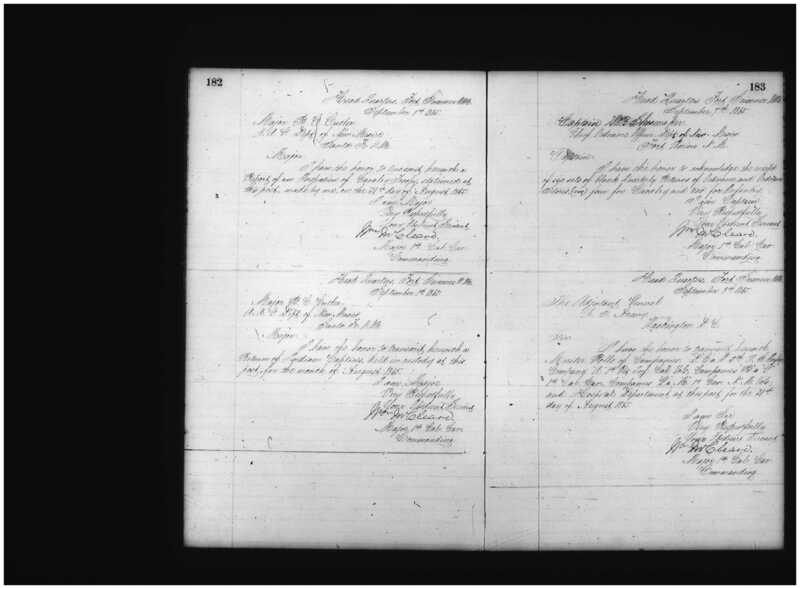 182
Head Quarters, Fort Sumner N.M.
September 1st 1865
Major
A.A.G. Dept. of New Mexico
Santa Fe N.M.
Major
I have the honor to transmit herewith a
Report of an Inspection of Cavalry Troops, stationed at
this post, made by me, on the 31st day of August 1865
I am Major
Very Respectfully
Your Obedient Servant
Wm McCleave
Major 1st Cal Cav
Commanding
Head Quarters, Fort Sumner N.M.
September 1st 1865
Major
A.A.G. Dept. of New Mexico
Santa Fe, N.M.
Major
I have the honor to transmit herewith a
Return of Indian Captives, held in custody at this
post, for the month of August, 1865.
I am Major
Very Respectfully
Your Obedient Servant
Wm McCleave
Major, 1st Cal Cav
Commanding
183
Head Quarters Fort Sumner N.M.
September 1865
Captain
Chief Ordnance Officer Dept of New Mexico
Fort Union N.M.
Captain
I have the honor to acknowledge the receipt
of six sets of blank Quarterly Returns of Ordnance and Ordnance
Stores, four for Cavalry and two for Infantry
I am Captain
Very Respectfully
Your Obedient Servant
Wm McCleave
Major 1st Cal Cav
Commanding
Head Quarters, Fort Sumner N.M.
September 1865
The Adjutant General
U.S. Army
Washington D.C.
Sir
I have the honor to transmit herewith
Muster Rolls of Companies
Company 1st Inf. Cal Vols, Companies
1st Cal Cav, Companies 1st Cav. N.M. Vols,
and Hospital Department at this post, for the 31st
day of August 1865
I am Sir
Very Respectfully
Your Obedient Servant
Wm McCleave
Major 1st Cal Cav
Commanding